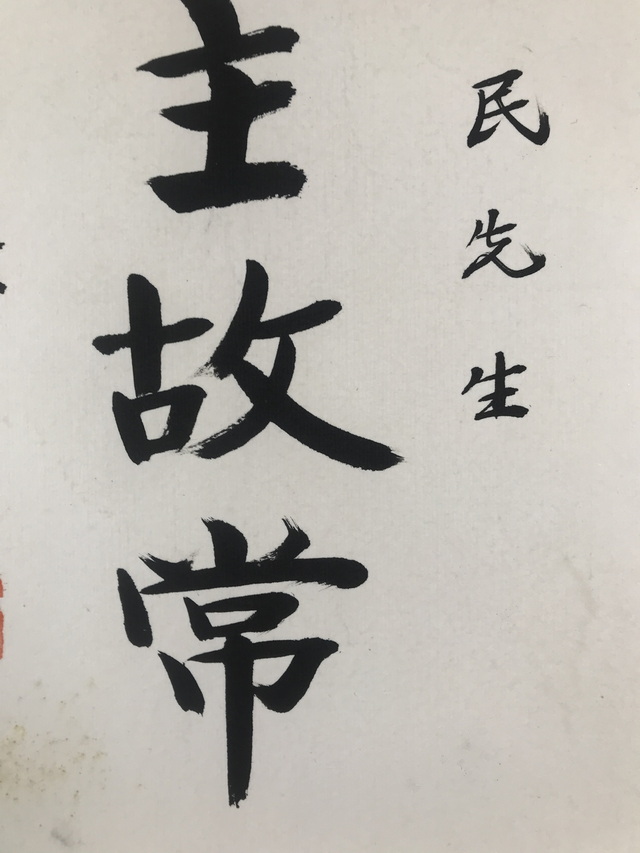 民先生
主故常